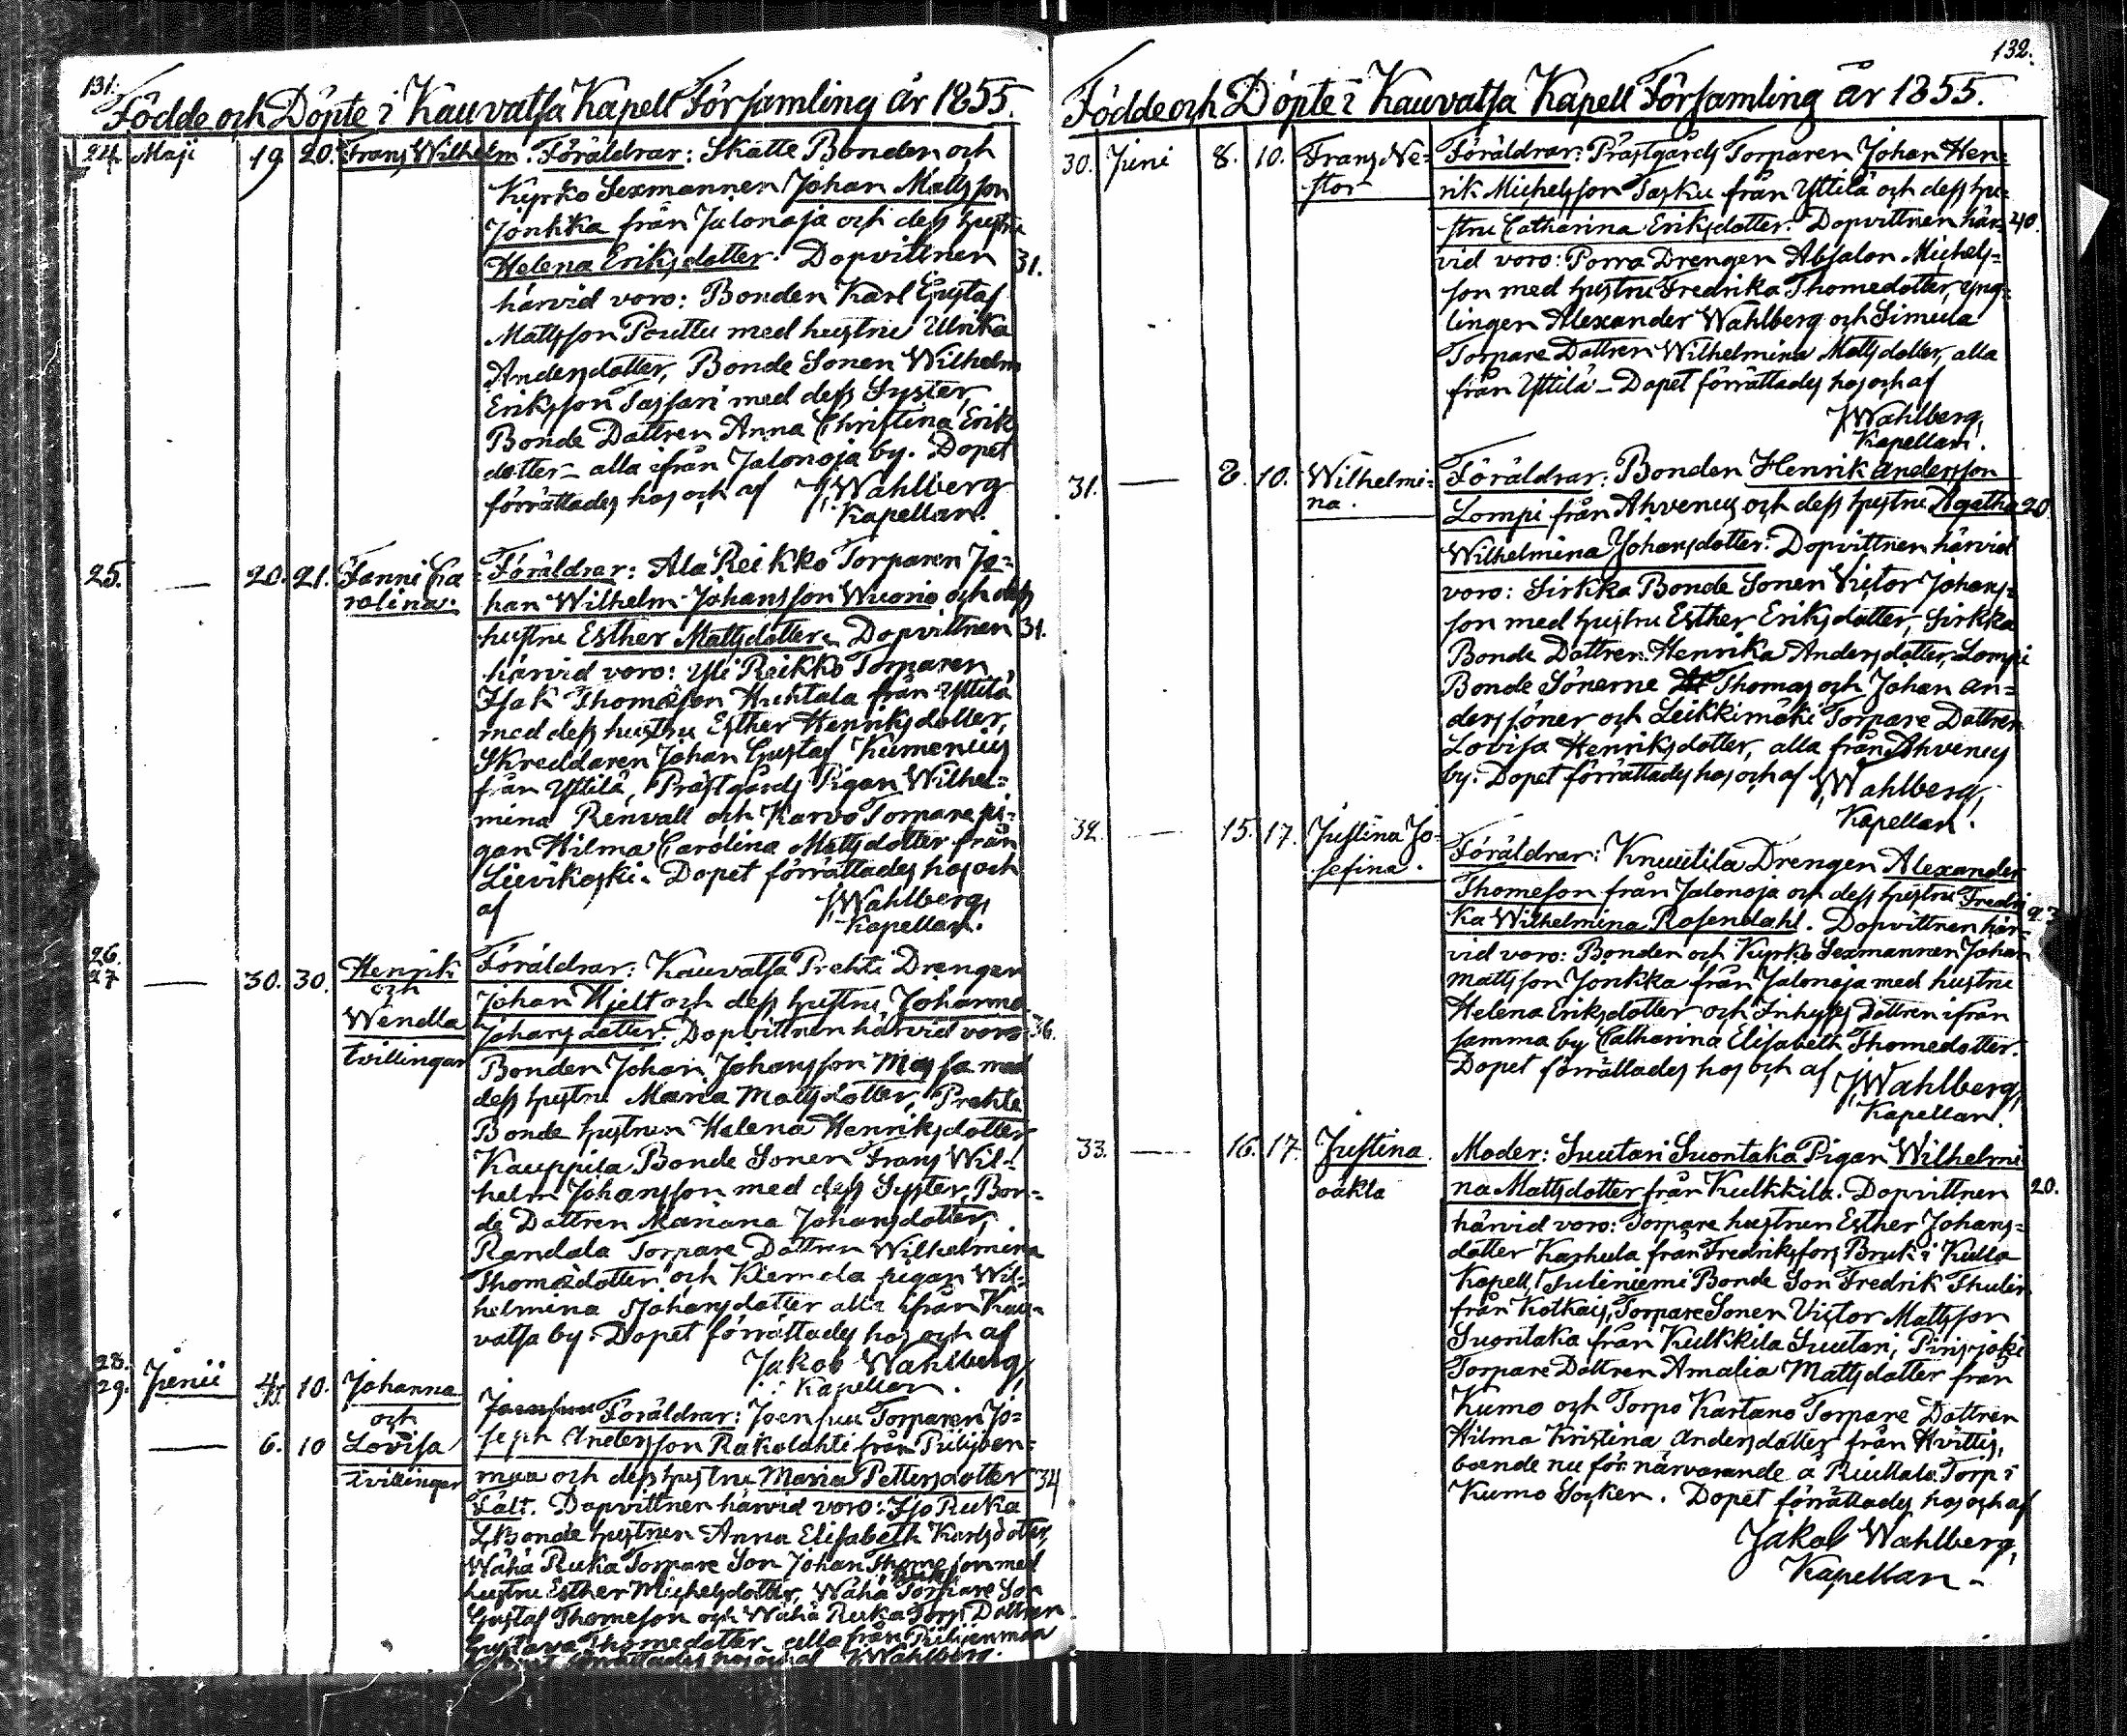 131.
Födde och Döpte i Kauvatsa Kapell Församling år 1855.
24. Maji 19 20. Frans Wilhelm. Föräldrar: Skatte Bonden och
Kyrko Sexmannen Johan Mattsson
Jonkka från Jalonoja och dess hustru
Helena Eriksdotter. Dopvittnen 31.
härvid voro: Bonden Karl Gustaf
Mattsson Pouttu med hustru Ulrika
Andersdotter, Bonde Sonen Wilhelm
Eriksson Tassari med dess Syster,
Bonde Dottren Anna Christina Eriks
dotter – alla ifrån Jalonoja by. Dopet
förrättades hos och af J. Wahlberg
Kapellan.
25. — 20. 21. Fanni Ca= Föräldrar: Ala Reikko Torparen Jo=
rolina. han Wilhelm Johansson Wuorio och dess
hustru Esther Mattsdotter. Dopvittnen 31.
härvid voro: Yli Reikko Torparen
Isak Thomasson Huhtala från Yttilä
med dess hustru Esther Henriksdotter,
Skreddaren Johan Gustaf Kumenius
från Yttilä, Prästgårds Pigan Wilhel=
mina Renvall och Karvo Torpare pi=
gan Hilma Carolina Mattsdotter från
Lievikoski. Dopet förrättades hos och
af J. Wahlberg,
Kapellan.
26.
27 — 30. 30. Henrik Föräldrar: Kauvatsa Prehti Drengen
och Johan Hjelt och dess hustru Johanna
Wendla Johansdotter. Dopvittnen härvid voro 36.
tvillingar Bonden Johan Johansson Massa med
dess hustru Maria Mattsdotter, Prehti
Bonde hustrun Helena Henriksdotter
Kauppila Bonde Sonen Frans Wil=
helm Johansson med dess Syster, Bon=
de Dottren Mariana Johansdotter,
Randala Torpare Dottren Wilhelmina
Thomædotter och Klemola pigan Wil=
helmina Johansdotter alla ifrån Kau=
vatsa by. Dopet förrättades hos och af
Jakob Wahlberg,
Kapellan.
28.
29. Junii 4/5. 10. Johanna Föräldrar: Joensuu Torparen Jo=
och seph Andersson Rakolahti från Piilijoen=
— 6. 10 Lovisa
tvillingar maa och dess hustru Maria Pettersdotter 34
Fält. Dopvittnen härvid voro: Iso Ruka
Bonde hustrun Anna Elisabeth Karlsdotter,
Wähä Ruka Torpare Son Johan Thomesson med
hustru Esther Michelsdotter, Wähä Ruka Torpare Son
Gustaf Thomeson och Wähä Ruka Torp. Dottren
Gustava Thomedotter alla från Piilijenmaa
Dopet förrättades hos och af J. Wahlberg.
132.
Födde och Döpte i Kauvatsa Kapell Församling år 1855.
30. Juni 8. 10. Frans Ne= Föräldrar: Prästgårds Torparen Johan Hen=
stor rik Michelsson Tasku från Yttilä och dess hu=
stru Catharina Eriksdotter. Dopvittnen här= 40.
vid voro: Porra Drengen Absalon Michels=
son med hustru Fredrika Thomedotter, yng=
lingen Alexander Wahlberg och Simula
Torpare Dottren Wilhelmina Mattsdotter, alla
från Yttilä – Dopet förrättades hos och af
J. Wahlberg,
Kapellan.
31. — 8. 10. Wilhelmi= Föräldrar: Bonden Henrik Andersson
na. Lompi från Ahvenus och dess hustru Agatha 20.
Wilhelmina Johansdotter. Dopvittnen härvid
voro: Sirkka Bonde Sonen Victor Johans=
son med hustru Esther Eriksdotter, Sirkka
Bonde Dottren Henrika Andersdotter, Lompi
Bonde Sönerne Thomas och Johan An=
derssöner och Leikkimäki Torpare Dottren
Lovisa Henriksdotter, alla från Ahvenus
by. Dopet förrättades hos och af J. Wahlberg,
Kapellan.
32. — 15. 17. Justina Jo= Föräldrar: Knuutila Drengen Alexander
sefina. Thomeson från Jalonoja och dess hustru Fredri
ka Wilhelmina Rosendahl. Dopvittnen här= 23
vid voro: Bonden och Kyrko Sexmannen Johan
Mattsson Jonkka från Jalonoja med hustru
Helena Eriksdotter och Inhyses Dottren ifrån
samma by Catharina Elisabeth Thomedotter.
Dopet förrättades hos och af J. Wahlberg,
Kapellan.
33. — 16. 17. Justina. Moder: Suutari Suontaka Pigan Wilhelmi
oäkta na Mattsdotter från Kulkkila. Dopvittnen 20.
härvid voro: Torpare hustrun Esther Johans=
dotter Karhula från Fredriksfors Bruk i Kulla
Kapell, Juliniemi Bonde Son Fredrik Thulin
från Kotkais, Torpare Sonen Victor Mattsson
Suontaka från Kulkkila Suutari, Pirisjoki
Torpare Dottren Amalia Mattsdotter från
Kumo och Torpo Kartano Torpare Dottren
Hilma Kristina Andersdotter från Hvittis,
boende nu för närvarande å Riukala Torp i
Kumo Socken. Dopet förrättades hos och af
Jakob Wahlberg,
Kapellan –